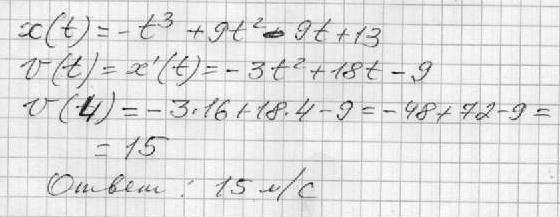 x(t) = -t³ + 9t² - 9t + 13
v(t) = x'(t) = -3t² + 18t - 9
v(4) = -3·16 + 18·4 - 9 = -48 + 72 - 9 =
= 15
Ответ: 15 м/с